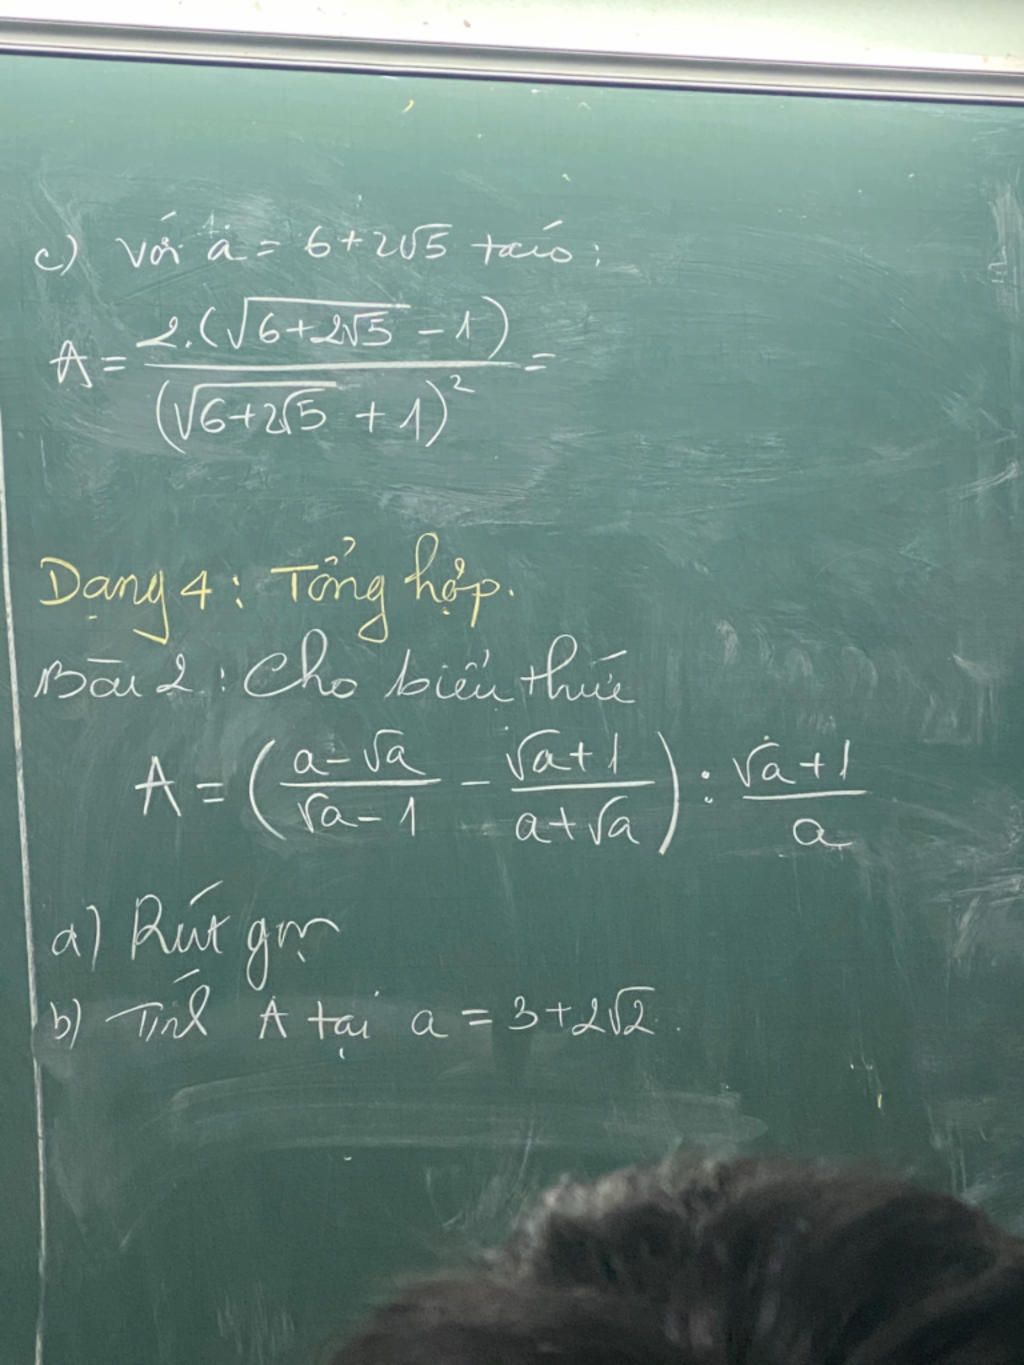 c) Với a = 6+2√5 ta có:
A = 2.(√(6+2√5) - 1) / (√(6+2√5) + 1)² =
Dạng 4: Tổng hợp.
Bài 2: Cho biểu thức
A = ((a-√a)/(√a-1) - (√a+1)/(a+√a)) : (√a+1)/a
a) Rút gọn
b) Tính A tại a = 3+2√2.